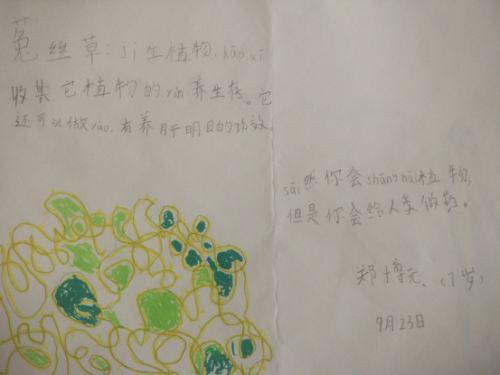 菟丝草：jì生植物，hǎo xǐ
收集它植物的yín养生存。它
还可以做yào，有养肝明目的功效。
suī然你会shānghài植物，
但是你会给人类做药。
郑博元（7岁）
9月23日